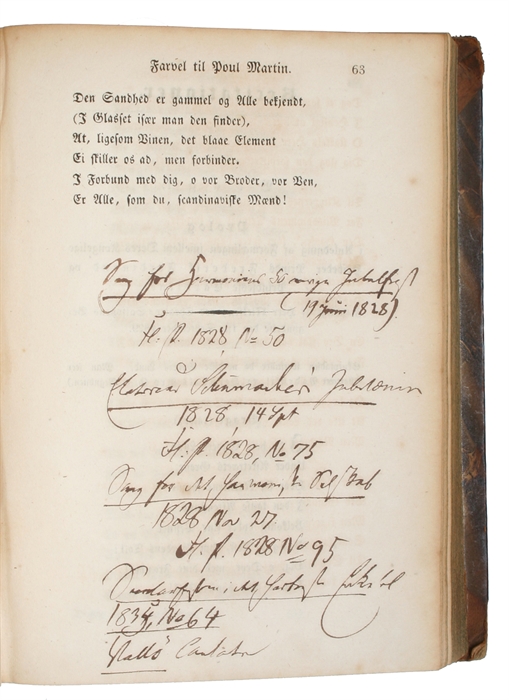 Farvel til Poul Martin. 63
Den Sandhed er gammel og Alle bekjendt,
(I Glasset især man den finder),
At, ligesom Vinen, det blaae Element
Ei skiller os ad, men forbinder.
I Forbund med dig, o vor Broder, vor Ven,
Er Alle, som du, scandinaviske Mænd!
Sang for Harmoniens 50 Jubelfest
(19 Juni 1828).
H. P. 1828 No 50
Schumachers Jubilæum
1828 14 Spt
H. P. 1828, No 75
Sang for det Selskab
1828 Nov 27
H. P. 1828 No 95
1834, No 64
Cantate